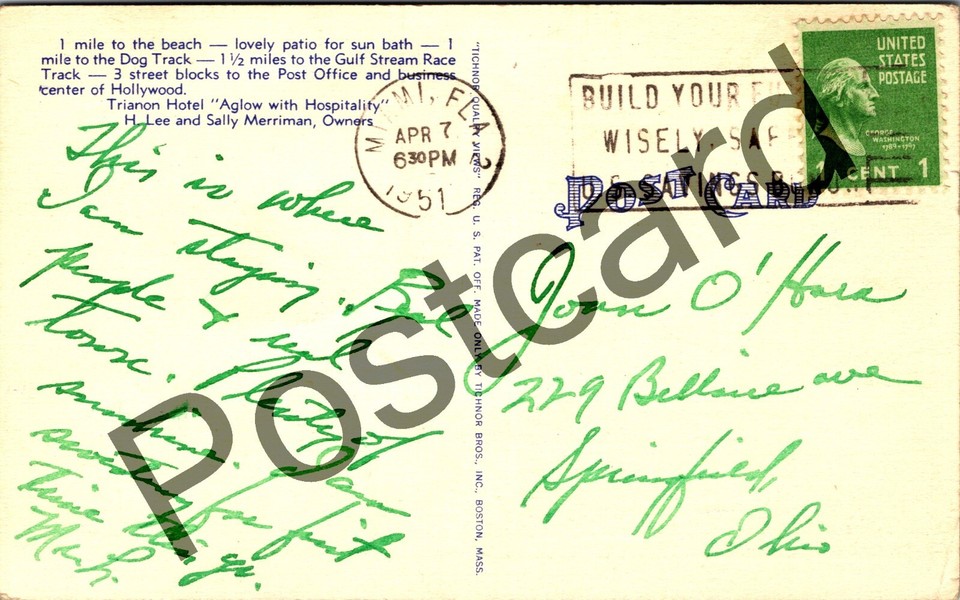 1 mile to the beach — lovely patio for sun bath — 1
mile to the Dog Track — 1½ miles to the Gulf Stream Race
Track — 3 street blocks to the Post Office and business
center of Hollywood.
Trianon Hotel "Aglow with Hospitality"
H. Lee and Sally Merriman, Owners
This is where
I am staying.
people &
town. plenty of
sunshine. I am
for first
time
MIAMI, FLA.
APR 7
6 30 PM
1951
"TICHNOR QUALITY VIEWS" REG. U. S. PAT. OFF. MADE ONLY BY TICHNOR BROS., INC., BOSTON, MASS.
BUILD YOUR FU
WISELY, SAF
U.S. SAVINGS BONDS
UNITED
STATES
POSTAGE
GEORGE
WASHINGTON
1789-1797
1 CENT 1
POST CARD
Joan O'Hara
229 Bellaire ave
Springfield,
Ohio
Postcard